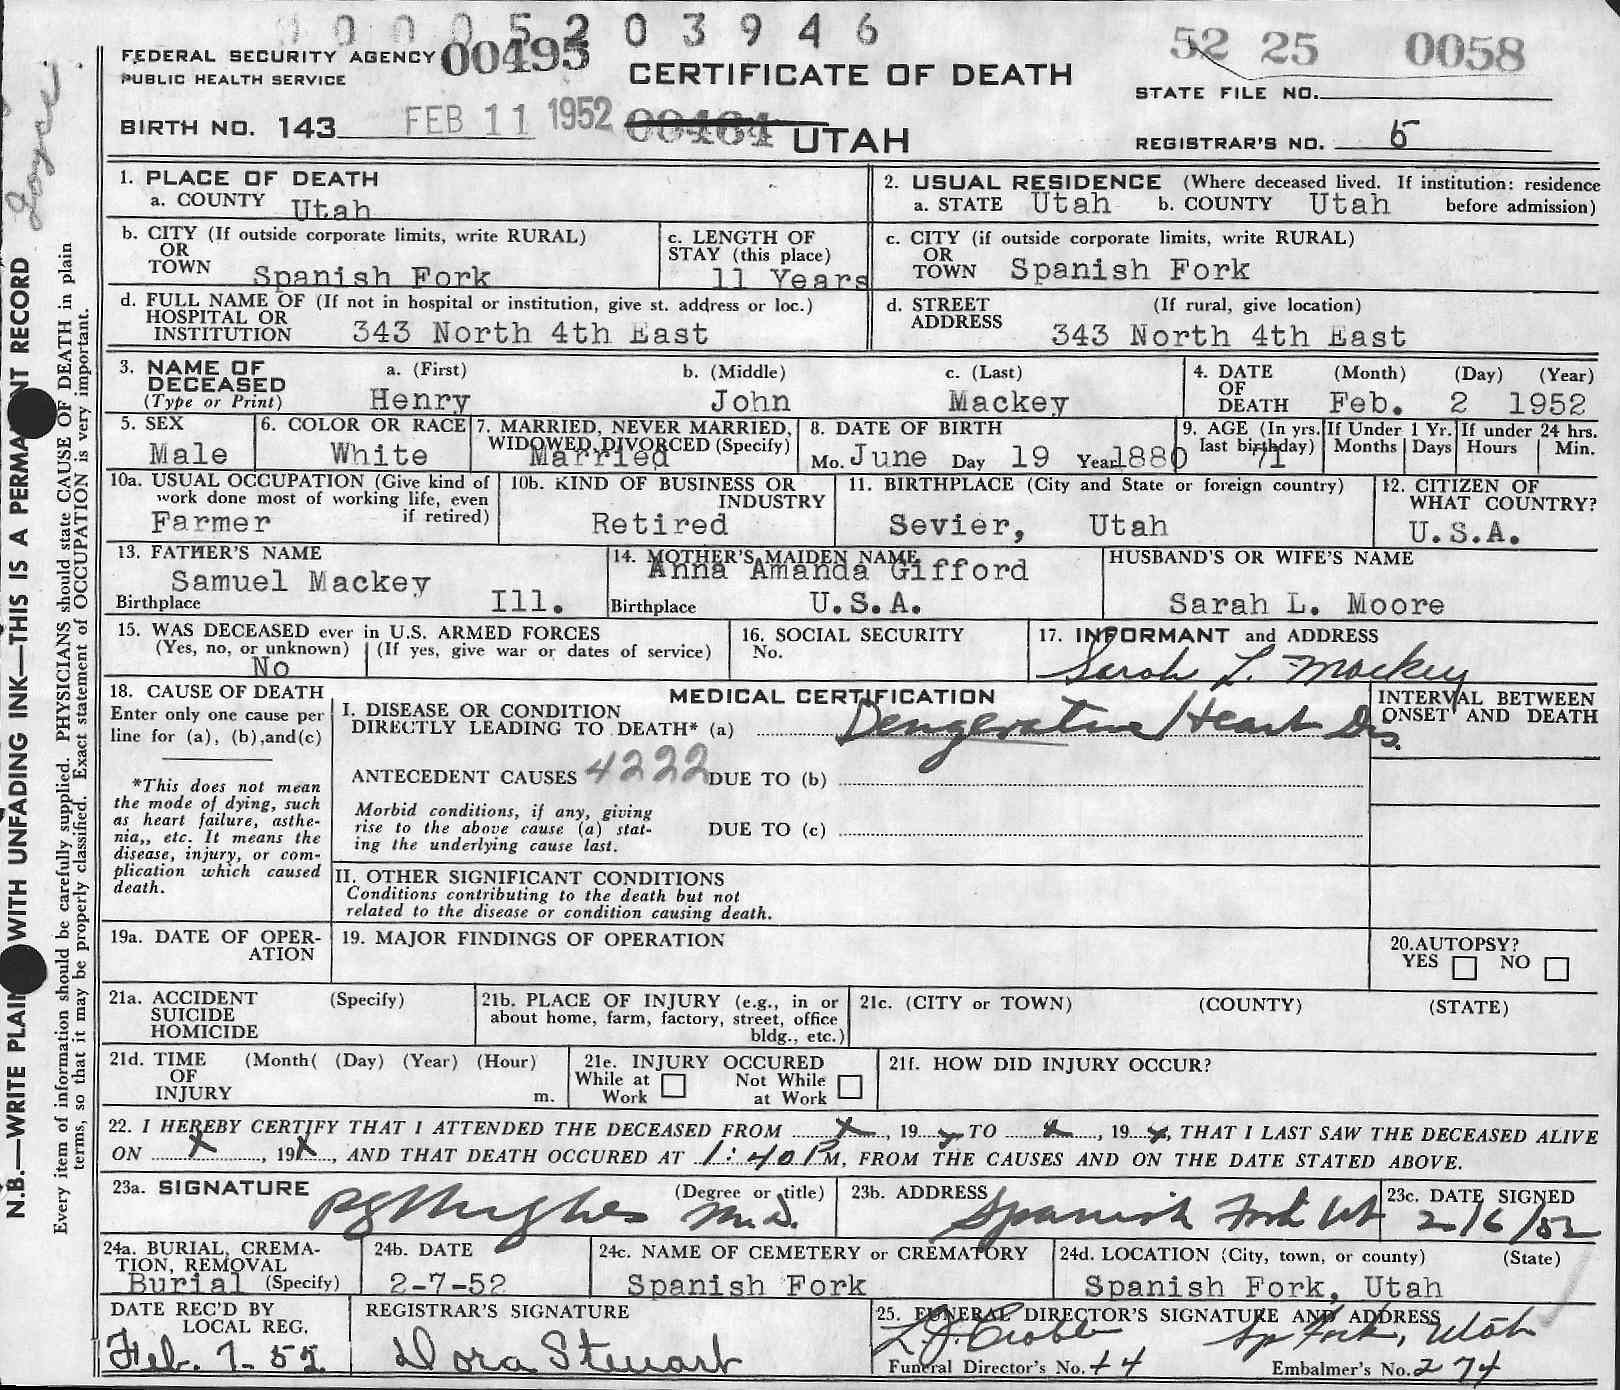 0 0 0 5 2 0 3 9 4 6
52 25 0058
FEDERAL SECURITY AGENCY 00495
PUBLIC HEALTH SERVICE
CERTIFICATE OF DEATH
STATE FILE NO.
BIRTH NO. 143 FEB 11 1952 00464 UTAH
REGISTRAR'S NO. 5
1. PLACE OF DEATH
a. COUNTY Utah
2. USUAL RESIDENCE (Where deceased lived. If institution: residence before admission)
a. STATE Utah b. COUNTY Utah
b. CITY (If outside corporate limits, write RURAL)
OR
TOWN Spanish Fork
c. LENGTH OF
STAY (this place)
11 Years
c. CITY (if outside corporate limits, write RURAL)
OR
TOWN Spanish Fork
d. FULL NAME OF (If not in hospital or institution, give st. address or loc.)
HOSPITAL OR
INSTITUTION 343 North 4th East
d. STREET (If rural, give location)
ADDRESS 343 North 4th East
3. NAME OF
DECEASED
(Type or Print)
a. (First) b. (Middle) c. (Last)
Henry John Mackey
4. DATE (Month) (Day) (Year)
OF
DEATH Feb. 2 1952
5. SEX
Male
6. COLOR OR RACE
White
7. MARRIED, NEVER MARRIED,
WIDOWED, DIVORCED (Specify)
Married
8. DATE OF BIRTH
Mo. June Day 19 Year 1880
9. AGE (In yrs. last birthday) 71
If Under 1 Yr.
Months Days
If under 24 hrs.
Hours Min.
10a. USUAL OCCUPATION (Give kind of
work done most of working life, even
if retired)
Farmer
10b. KIND OF BUSINESS OR
INDUSTRY
Retired
11. BIRTHPLACE (City and State or foreign country)
Sevier, Utah
12. CITIZEN OF
WHAT COUNTRY?
U.S.A.
13. FATHER'S NAME
Samuel Mackey
Birthplace Ill.
14. MOTHER'S MAIDEN NAME
Anna Amanda Gifford
Birthplace U.S.A.
HUSBAND'S OR WIFE'S NAME
Sarah L. Moore
15. WAS DECEASED ever in U.S. ARMED FORCES
(Yes, no, or unknown) (If yes, give war or dates of service)
No
16. SOCIAL SECURITY
No.
17. INFORMANT and ADDRESS
Sarah L. Mackey
18. CAUSE OF DEATH
Enter only one cause per
line for (a), (b),and(c)
*This does not mean
the mode of dying, such
as heart failure, asthe-
nia,, etc. It means the
disease, injury, or com-
plication which caused
death.
MEDICAL CERTIFICATION
I. DISEASE OR CONDITION
DIRECTLY LEADING TO DEATH* (a) Dengerative Heart Dis.
INTERVAL BETWEEN
ONSET AND DEATH
ANTECEDENT CAUSES 4222 DUE TO (b)
Morbid conditions, if any, giving
rise to the above cause (a) stat-
ing the underlying cause last.
DUE TO (c)
II. OTHER SIGNIFICANT CONDITIONS
Conditions contributing to the death but not
related to the disease or condition causing death.
19a. DATE OF OPER-
ATION
19. MAJOR FINDINGS OF OPERATION
20.AUTOPSY?
YES NO
21a. ACCIDENT (Specify)
SUICIDE
HOMICIDE
21b. PLACE OF INJURY (e.g., in or
about home, farm, factory, street, office
bldg., etc.)
21c. (CITY or TOWN) (COUNTY) (STATE)
21d. TIME (Month( (Day) (Year) (Hour)
OF
INJURY m.
21e. INJURY OCCURED
While at Work Not While at Work
21f. HOW DID INJURY OCCUR?
22. I HEREBY CERTIFY THAT I ATTENDED THE DECEASED FROM x, 19 x TO x, 19 x, THAT I LAST SAW THE DECEASED ALIVE
ON x, 19 x, AND THAT DEATH OCCURED AT 1:40 PM, FROM THE CAUSES AND ON THE DATE STATED ABOVE.
23a. SIGNATURE (Degree or title)
Hughes M.D.
23b. ADDRESS
Spanish Fork Ut
23c. DATE SIGNED
2/6/52
24a. BURIAL, CREMA-
TION, REMOVAL
Burial (Specify)
24b. DATE
2-7-52
24c. NAME OF CEMETERY or CREMATORY
Spanish Fork
24d. LOCATION (City, town, or county) (State)
Spanish Fork, Utah
DATE REC'D BY
LOCAL REG.
Feb. 7-52
REGISTRAR'S SIGNATURE
Dora Stewart
25. FUNERAL DIRECTOR'S SIGNATURE AND ADDRESS
Sp Fork, Utah
Funeral Director's No. 44 Embalmer's No. 274
N.B.—WRITE PLAIN WITH UNFADING INK—THIS IS A PERMA NT RECORD
Every item of information should be carefully supplied. PHYSICIANS should state CAUSE OF DEATH in plain
terms, so that it may be properly classified. Exact statement of OCCUPATION is very important.